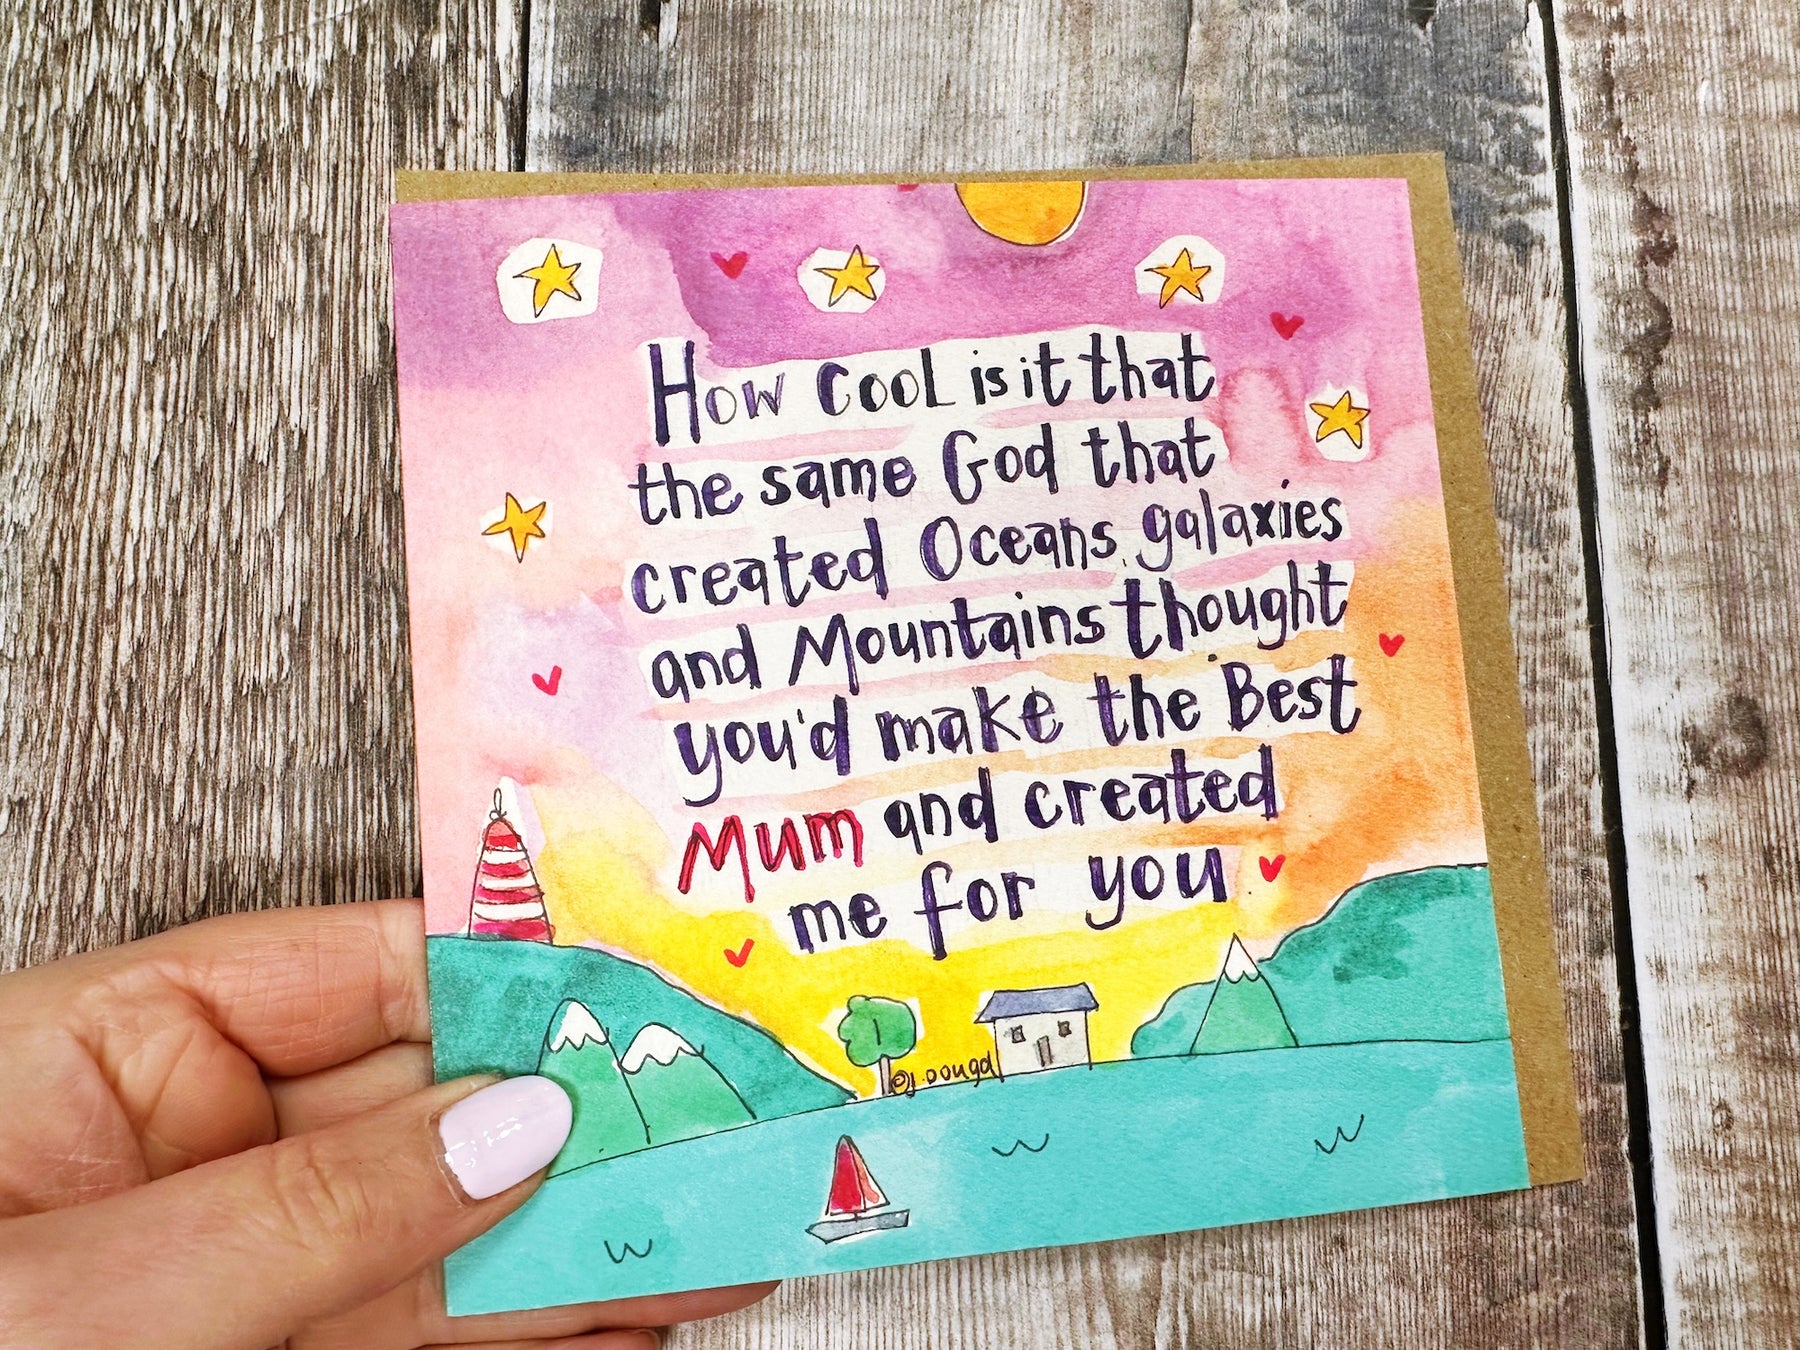 How cool is it that
the same God that
created Oceans galaxies
and Mountains thought
you'd make the Best
Mum and created
me for you
©J.Dougal